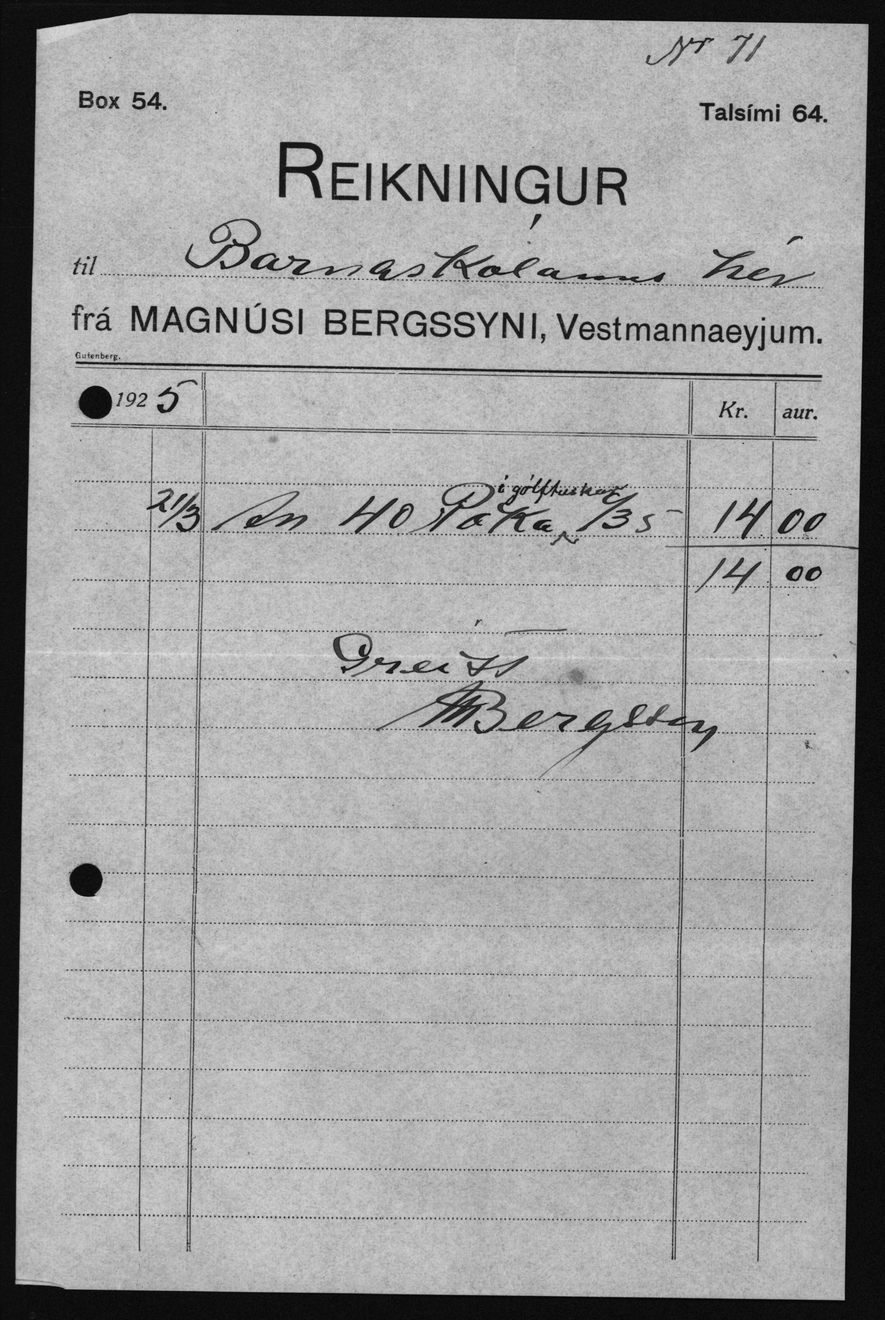 Nr 71
Box 54.
Talsími 64.
REIKNINGUR
til Barnaskólanns hér
frá MAGNÚSI BERGSSYNI, Vestmannaeyjum.
Gutenberg.
1925 Kr. aur.
í gólftuskur
21/3 An 40 Poka /35 14 00
14 00
Greitt
MBergsson